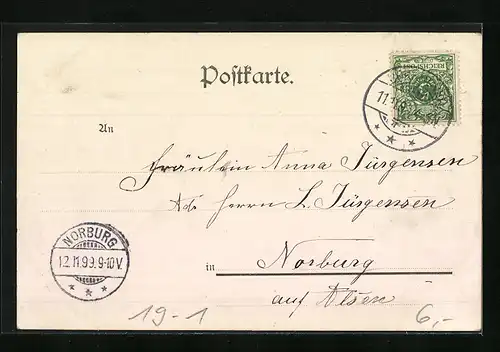 Postkarte.
REICHSPOST
11.11.9
An
Fräulein Anna Jürgensen
Adr. Herrn L. Jürgensen
NORBURG
12.11.99.9-10V.
in Norburg
auf Alsen
19-1
6,-